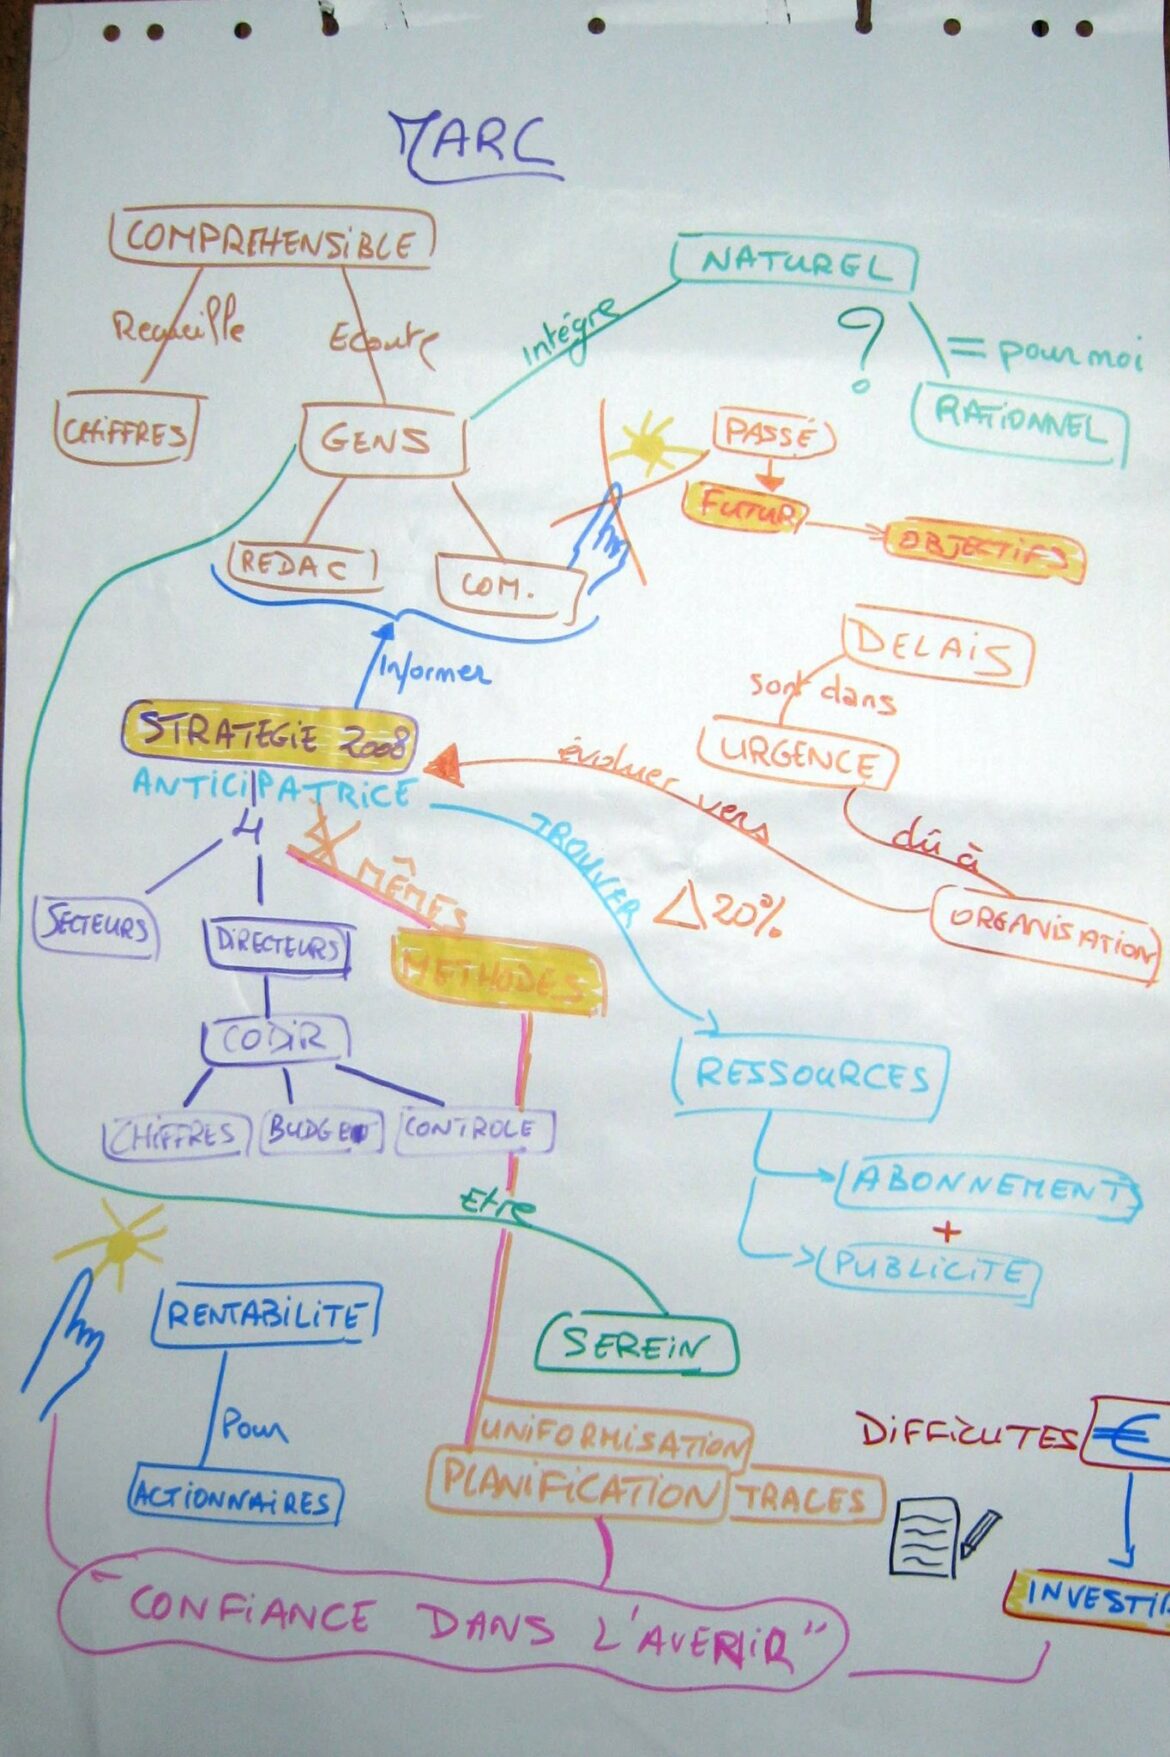 MARC
COMPREHENSiBLE
Recueille
Ecoute
CHiFFRES
GENS
REDAC
COM.
Intégre
NATUREL
?
= pour moi
RATiONNEL
PASSÉ
FUTUR
OBJECTIFS
DELAiS
sont dans
URGENCE
dû à
ORGANISATION
évoluer vers
Informer
STRATEGIE 2008
ANTICIPATRICE
4
SECTEURS
DiRECTEURS
CODiR
CHiFFRES
BUDGET
CONTROLE
MÊMES
METHODES
TROUVER
Δ 20%
RESSOURCES
ABONNEMENTS
+
PUBLICITE
Etre
SEREiN
RENTABiLiTE
Pour
ACTIONNAIRES
UNiFORMiSATiON
PLANiFiCATiON
TRACES
DiFFiCUTES
€
INVESTIR
"CONFiANCE DANS L'AVENiR"